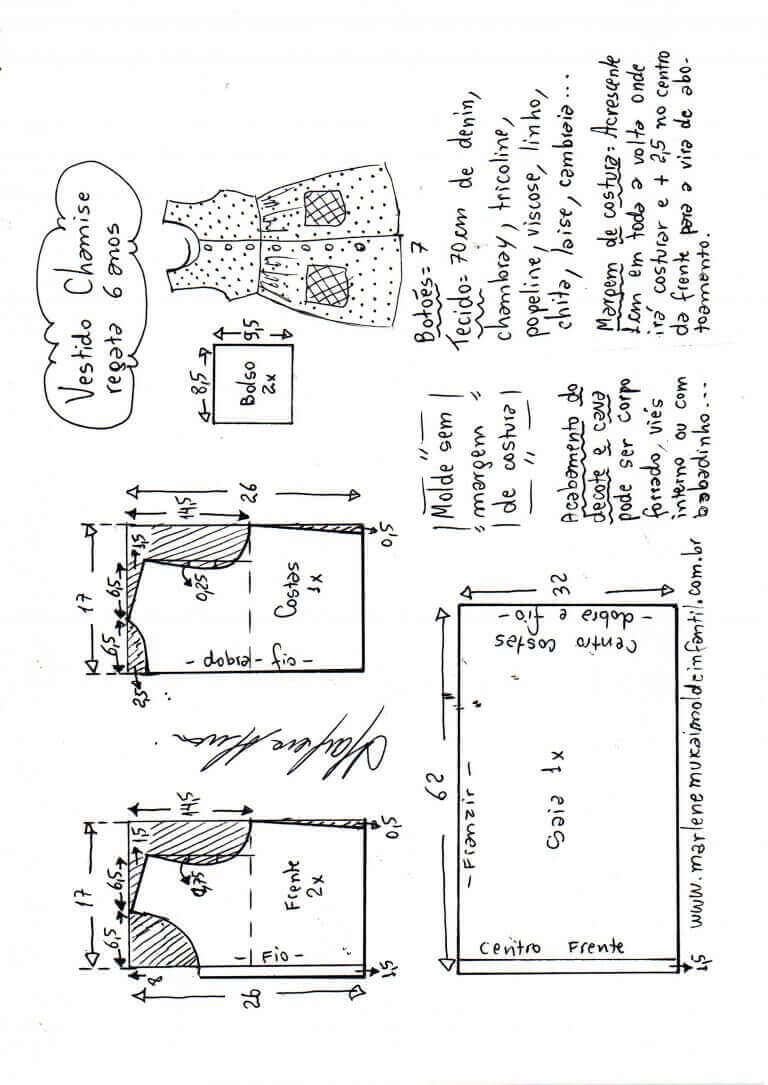 Vestido Chamise
regata 6 anos
9,5
8,5
Bolso
2x
Botões= 7
Tecido= 70cm de denin,
chambray, tricoline,
popeline, viscose, linho,
chita, laise, cambraia...
Margem de costura= Acrescente
1cm em toda a volta onde
irá costurar e + 2,5 no centro
da frente para a vira de abo-
toamento.
|Molde sem|
"margem"
|de costura|
Acabamento do
decote e cava
pode ser corpo
forrado, viés
interno ou com
babadinho...
17
6,5
6,5
1,5
14,5
26
2,5
0,25
Costas
1x
- dobra - fio -
0,5
17
6,5
6,5
1,5
14,5
8
0,75
Frente
2x
- Fio -
26
0,5
1,5
62
32
- Franzir -
Saia 1x
Centro costas
- dobra e fio -
Centro Frente
1,5
www.marlenemukaimoldeinfantil.com.br